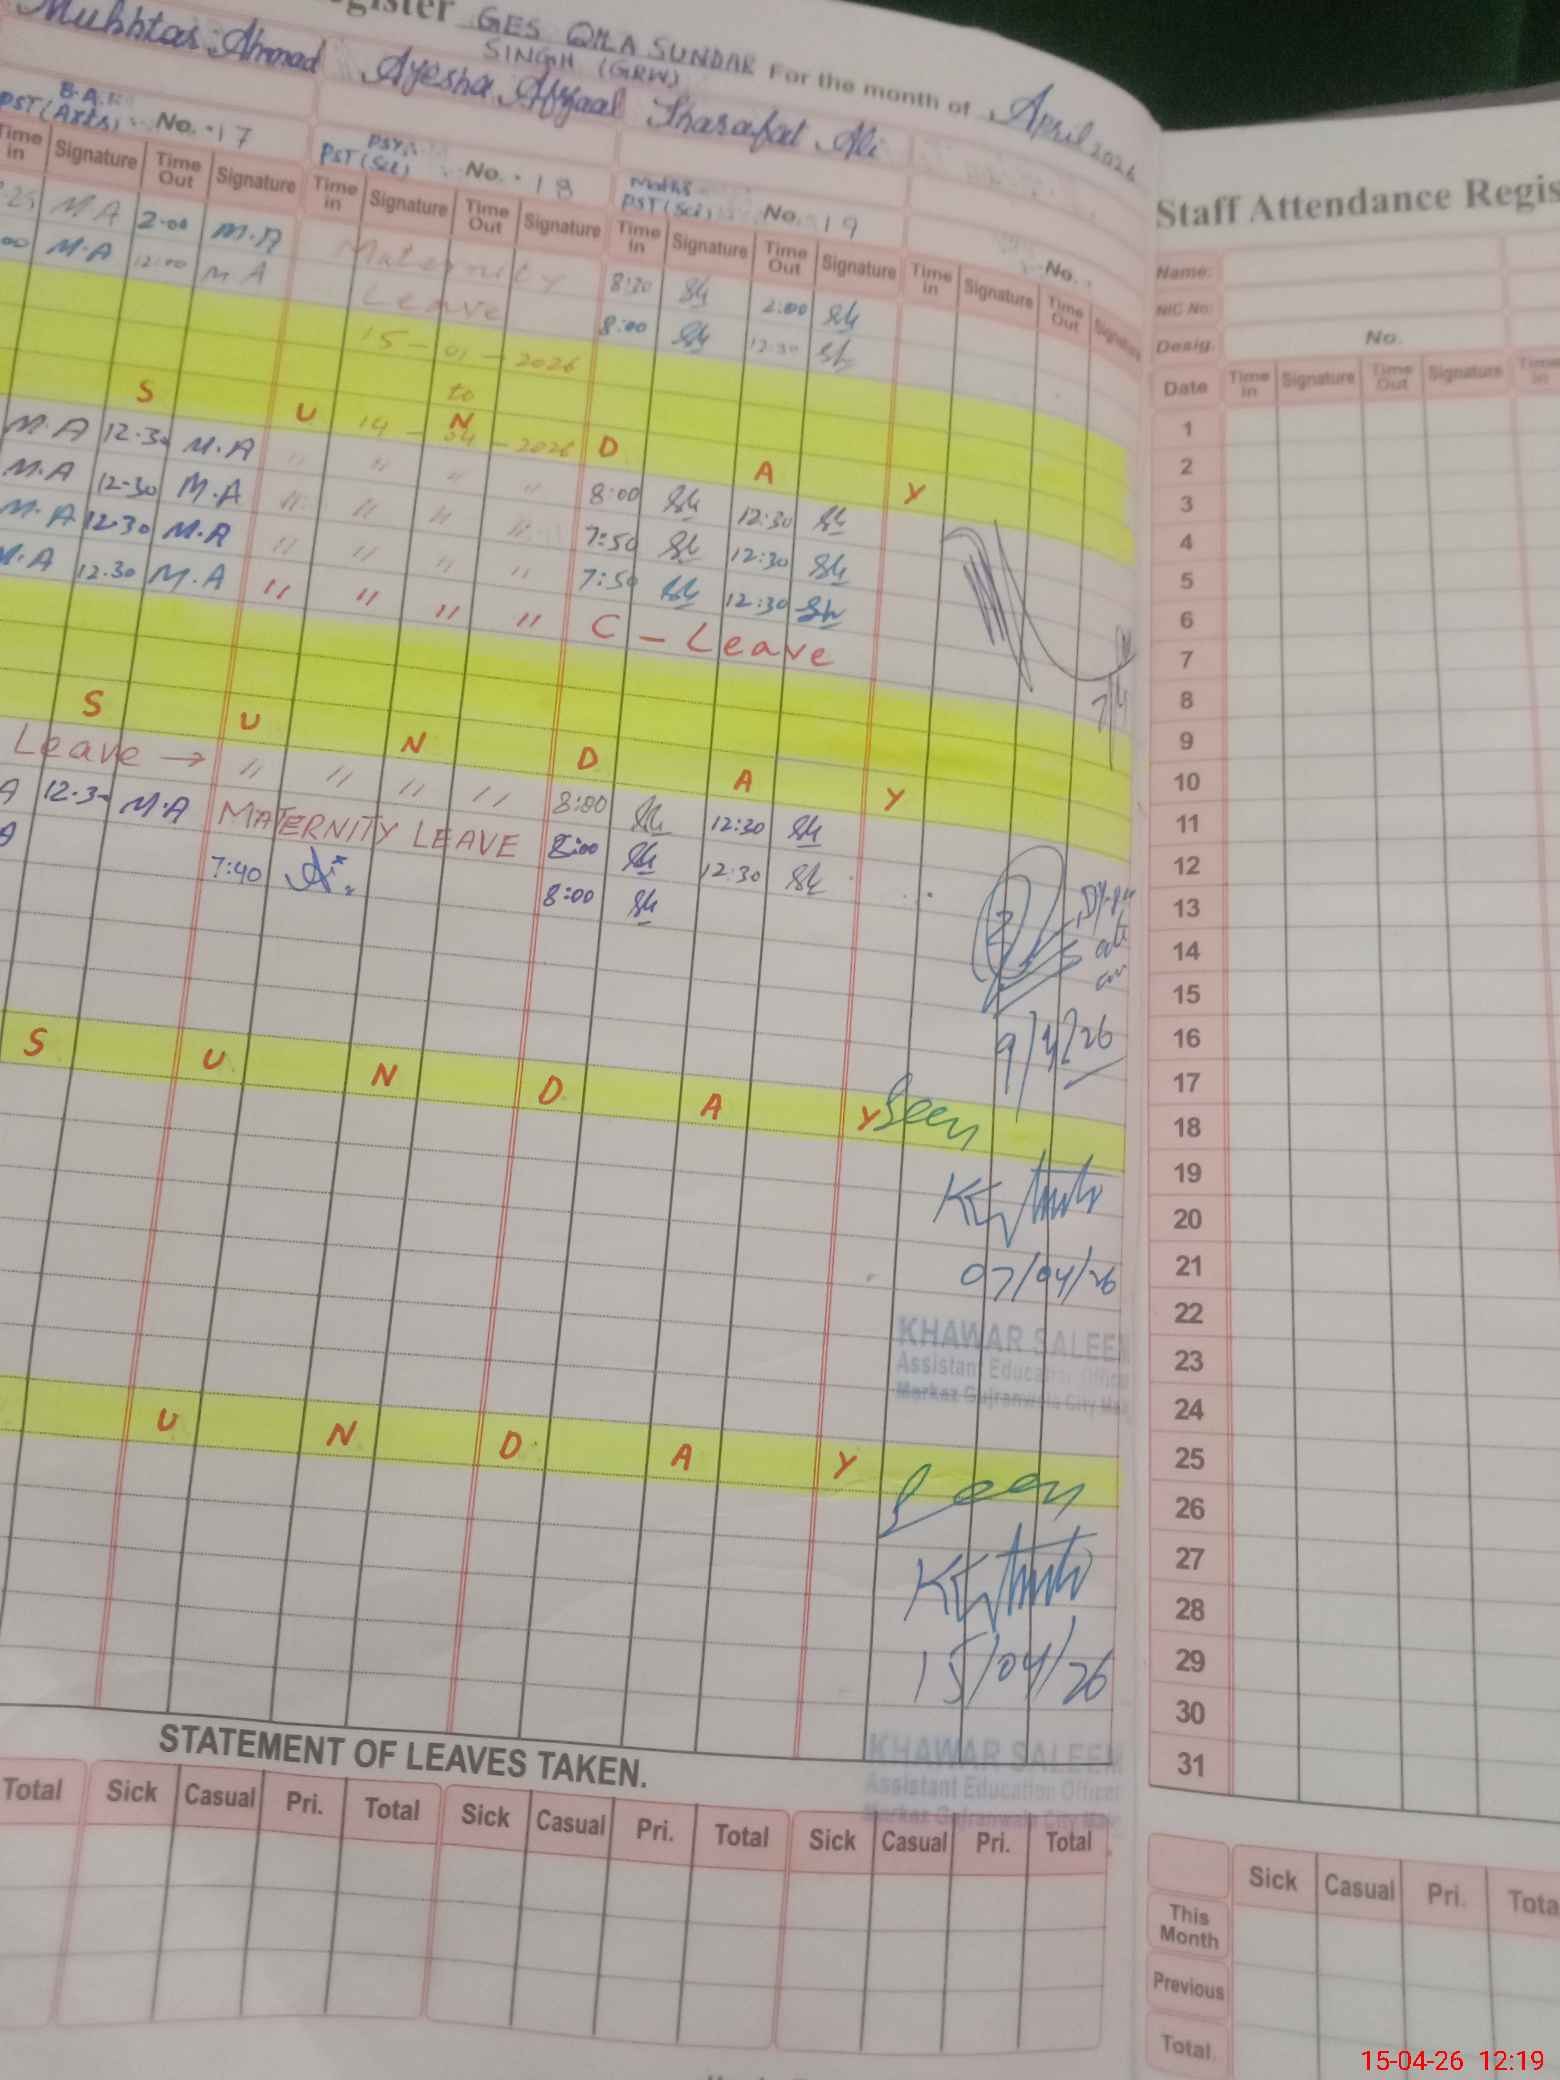 Register GES QILA SUNDAR SINGH (GRW) For the month of April 2026
Mukhtar Ahmad Ayesha Afzaal Sharafat Ali
PST (Arts) No. 17 PST (Sci) No. 18 Maths PST (Sci) No. 19 No.
Time in Signature Time Out Signature Time in Signature Time Out Signature Time in Signature Time Out Signature Time in Signature Time Out Signature
M A 2-00 M.A Maternity 8:30 Sh 2:00 Sh
M.A 12:00 M A Leave 8:00 Sh 12:30 Sh
15-01-2026
to
14-04-2026
S U N D A Y
M.A 12-30 M.A " " " " 8:00 Sh 12:30 Sh
M.A 12-30 M.A " " " " 7:50 Sh 12:30 Sh
M.A 12.30 M.A " " " " 7:50 Sh 12:30 Sh
M.A 12.30 M.A " " " " C - Leave
S U N D A Y
Leave → " " " " 8:00 Sh 12:30 Sh
A 12.30 M.A MATERNITY LEAVE 8:00 Sh 12:30 Sh
A 7:40 8:00 Sh
9/4/26
S U N D A Y
Seen
07/04/26
KHAWAR SALEEM
Assistant Education Officer
Markaz Gujranwala City
U N D A Y
Seen
15/04/26
KHAWAR SALEEM
Assistant Education Officer
Markaz Gujranwala City
STATEMENT OF LEAVES TAKEN.
Total Sick Casual Pri. Total Sick Casual Pri. Total Sick Casual Pri. Total
Staff Attendance Regis
Name:
NIC No:
Desig. No.
Date Time in Signature Time Out Signature Time in
1
2
3
4
5
6
7
8
9
10
11
12
13
14
15
16
17
18
19
20
21
22
23
24
25
26
27
28
29
30
31
Sick Casual Pri. Tota
This Month
Previous
Total.
15-04-26 12:19